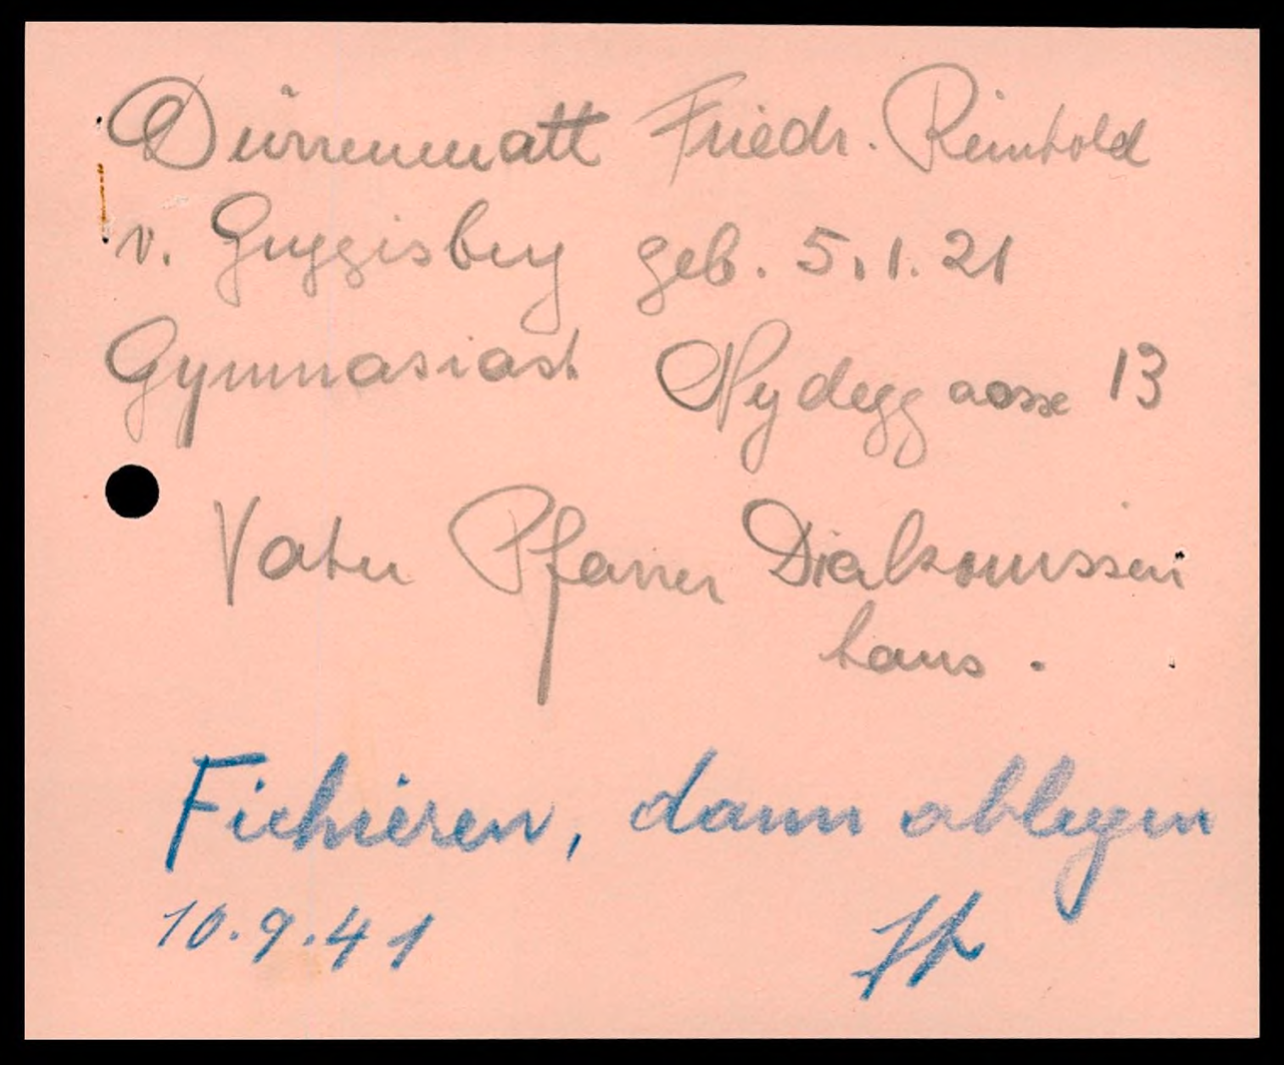 Dürrenmatt Friedr. Reinhold
v. Guggisberg geb. 5.1.21
Gymnasiast Nydeggasse 13
Vater Pfarrer Diakonissen
haus.
Fichieren, dann ablegen
10.9.41